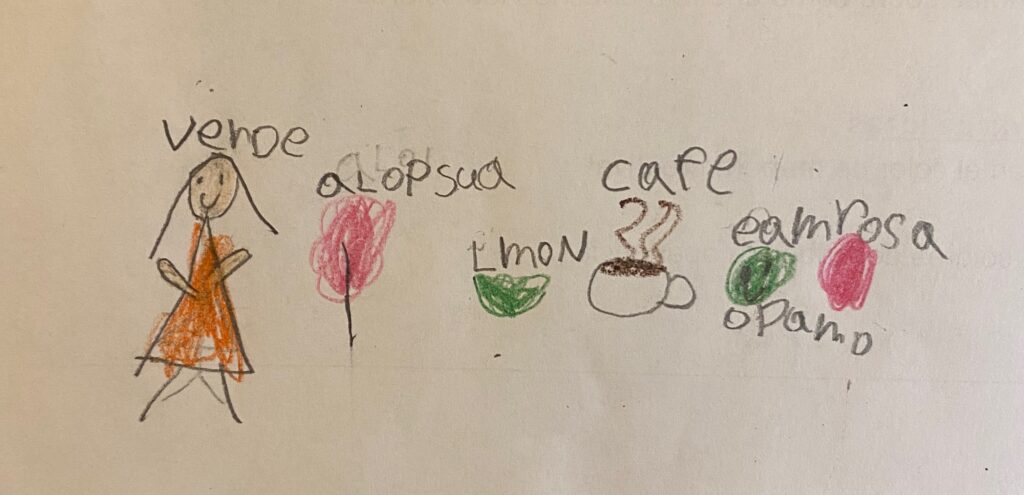 VerDe
aLOPsua
LmoN
cafe
eamrosa
oPamo